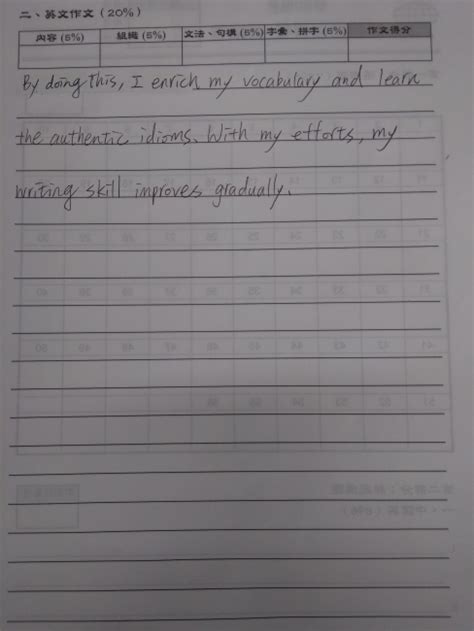 二、英文作文(20%)
內容(5%) 組織(5%) 文法、句構(5%) 字彙、拼字(5%) 作文得分
By doing this, I enrich my vocabulary and learn
the authentic idioms. With my efforts, my
writing skill improves gradually.